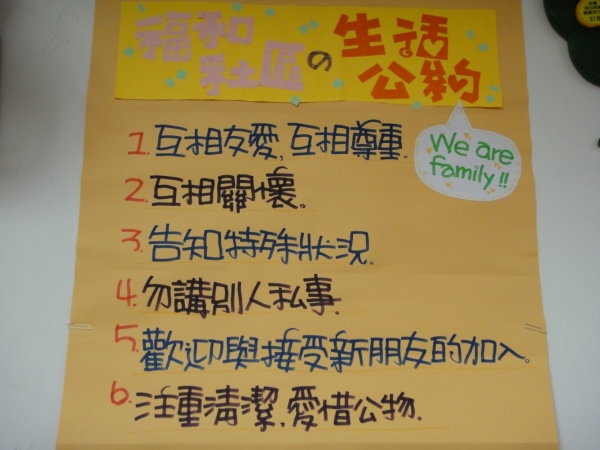 福和社區の生活公約
We are family!!
1.互相友愛,互相尊重.
2.互相關懷。
3.告知特殊狀況。
4.勿講別人私事.
5.歡迎與接受新朋友的加入。
6.注重清潔,愛惜公物.